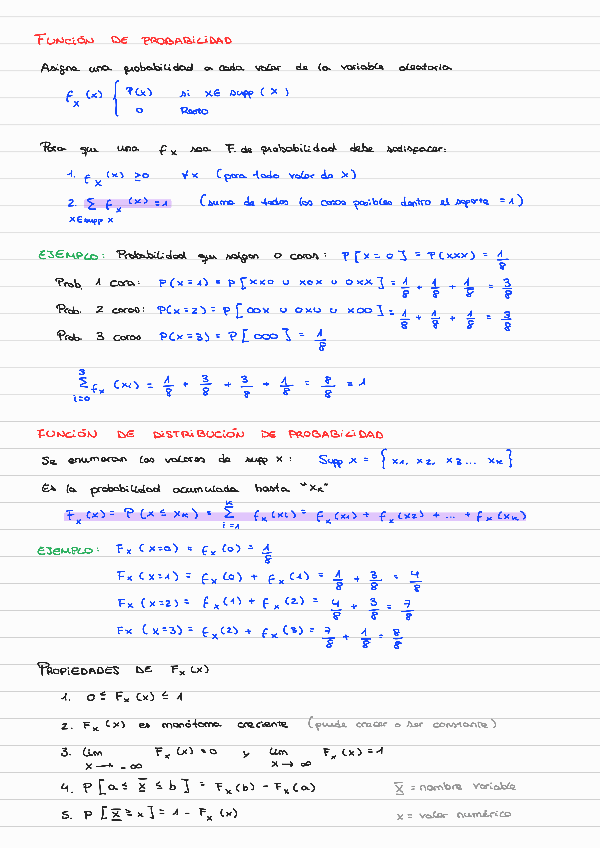 FUNCIÓN DE PROBABILIDAD
Asigna una probabilidad a cada valor de la variable aleatoria
f_X (x) { P(x) si x ∈ supp (X)
0 Resto
Para que una f_X sea F. de probabilidad debe satisfacer:
1. f_X (x) ≥ 0 ∀x (para todo valor de x)
2. Σ f_X (x) = 1 (suma de todos los casos posibles dentro el soporte = 1)
x∈supp x
EJEMPLO: Probabilidad que salgan 0 caras: P[X=0] = P(XXX) = 1/8
Prob. 1 cara: P(X=1) = P[XXO ∪ XOX ∪ OXX] = 1/8 + 1/8 + 1/8 = 3/8
Prob. 2 caras: P(X=2) = P[OOX ∪ OXO ∪ XOO] = 1/8 + 1/8 + 1/8 = 3/8
Prob. 3 caras P(X=3) = P[OOO] = 1/8
3
Σ f_X (xi) = 1/8 + 3/8 + 3/8 + 1/8 = 8/8 = 1
i=0
FUNCIÓN DE DISTRIBUCIÓN DE PROBABILIDAD
Se enumeran los valores de supp x: Supp x = {x1, x2, x3... xk}
Es la probabilidad acumulada hasta "xk"
F_X (x) = P(x ≤ xk) = Σ f_X (xi) = f_X (x1) + f_X (x2) + ... + f_X (xk)
k
i=1
EJEMPLO: F_X (x=0) = f_X (0) = 1/8
F_X (x=1) = f_X (0) + f_X (1) = 1/8 + 3/8 = 4/8
F_X (x=2) = f_X (1) + f_X (2) = 4/8 + 3/8 = 7/8
F_X (x=3) = f_X (2) + f_X (3) = 7/8 + 1/8 = 8/8
PROPIEDADES DE F_X (x)
1. 0 ≤ F_X (x) ≤ 1
2. F_X (x) es monótoma creciente (puede crecer o ser constante)
3. lim F_X (x) = 0 y lim F_X (x) = 1
x → -∞ x → ∞
4. P[a ≤ X ≤ b] = F_X (b) - F_X (a) X = nombre variable
5. P[X ≥ x] = 1 - F_X (x) x = valor numérico